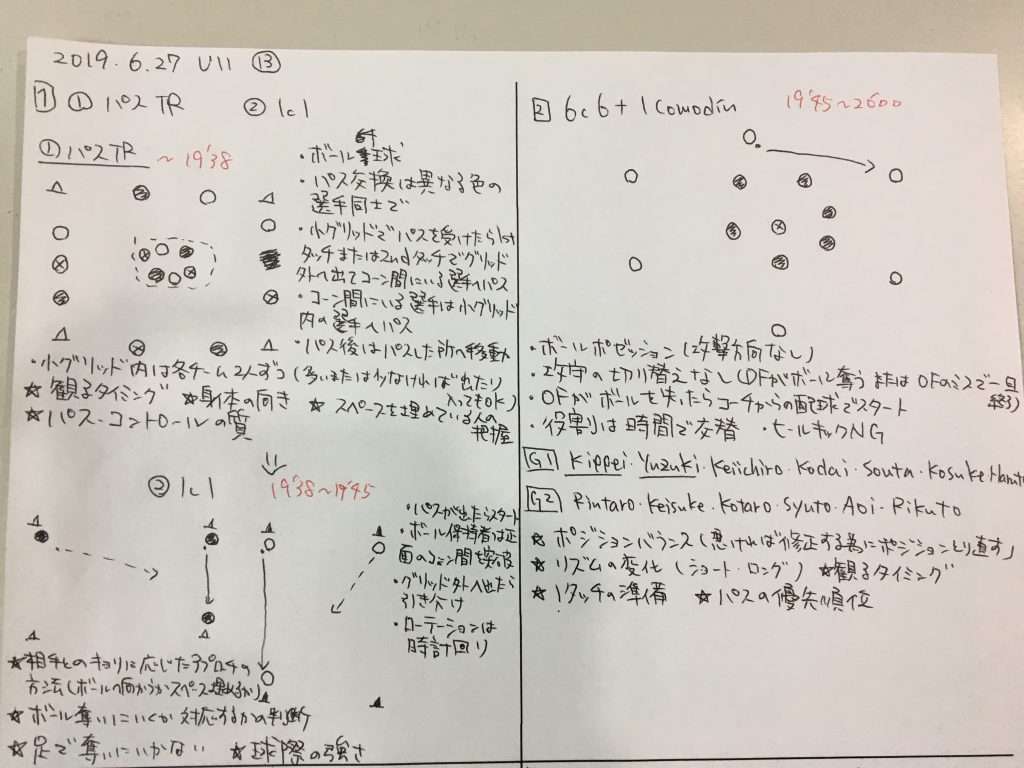 2019.6.27 U11 ⑬
1 ① パスTR ② 1c1
① パスTR ～19'38
・ボール6球
・パス交換は異なる色の
選手同士で
・小グリッドでパスを受けたら1st
タッチまたは2ndタッチでグリッド
外へ出てコーン間にいる選手へパス
・コーン間にいる選手は小グリッド
内の選手へパス
・パス後はパスした所へ移動
・小グリッド内は各チーム2人ずつ(多いまたは少なければ出たり
入ってもOK)
☆観るタイミング ☆身体の向き ☆スペースを埋めている人の
把握
☆パス・コントロールの質
② 1c1 19'38～19'45
・パスが出たらスタート
・ボール保持者は正
面のコーン間を突破
・グリッド外へ出たら
引き分け
・ローテーションは
時計回り
☆相手とのキョリに応じたアプローチの
方法(ボールへ向かうかスペース埋めるか)
☆ボール奪いにいくか対応するかの判断
☆足で奪いにいかない ☆球際の強さ
2 6c6+1Comodín 19'45～20'00
・ボールポゼッション(攻撃方向なし)
・攻守の切り替えなし(DFがボール奪うまたはOFのミスで一旦
終了)
・OFがボールを失ったらコーチからの配球でスタート
・役割は時間で交替 ・ヒールキックNG
G1 Kippei・Yuzuki・Keiichiro・Kodai・Souta・Kosuke
G2 Rintaro・Keisuke・Kotaro・Syuto・Aoi・Rikuto
☆ポジションバランス(悪ければ修正する為にポジションとり直す)
☆リズムの変化(ショート・ロング) ☆観るタイミング
☆1タッチの準備 ☆パスの優先順位